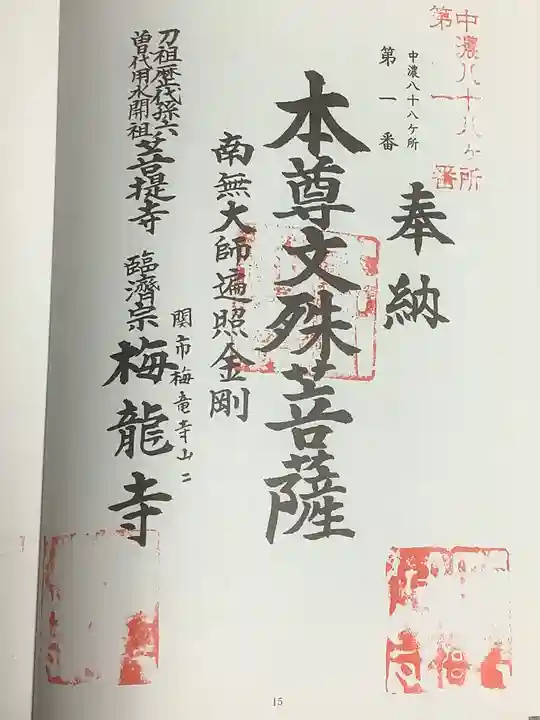 中濃八十八ヶ所
第一番
奉納
中濃八十八ケ所
第一番
本尊文殊菩薩
南無大師遍照金剛
関市梅竜寺山二
刀祖歴代孫六
曽代用水開祖
菩提寺
臨濟宗
梅龍寺
15